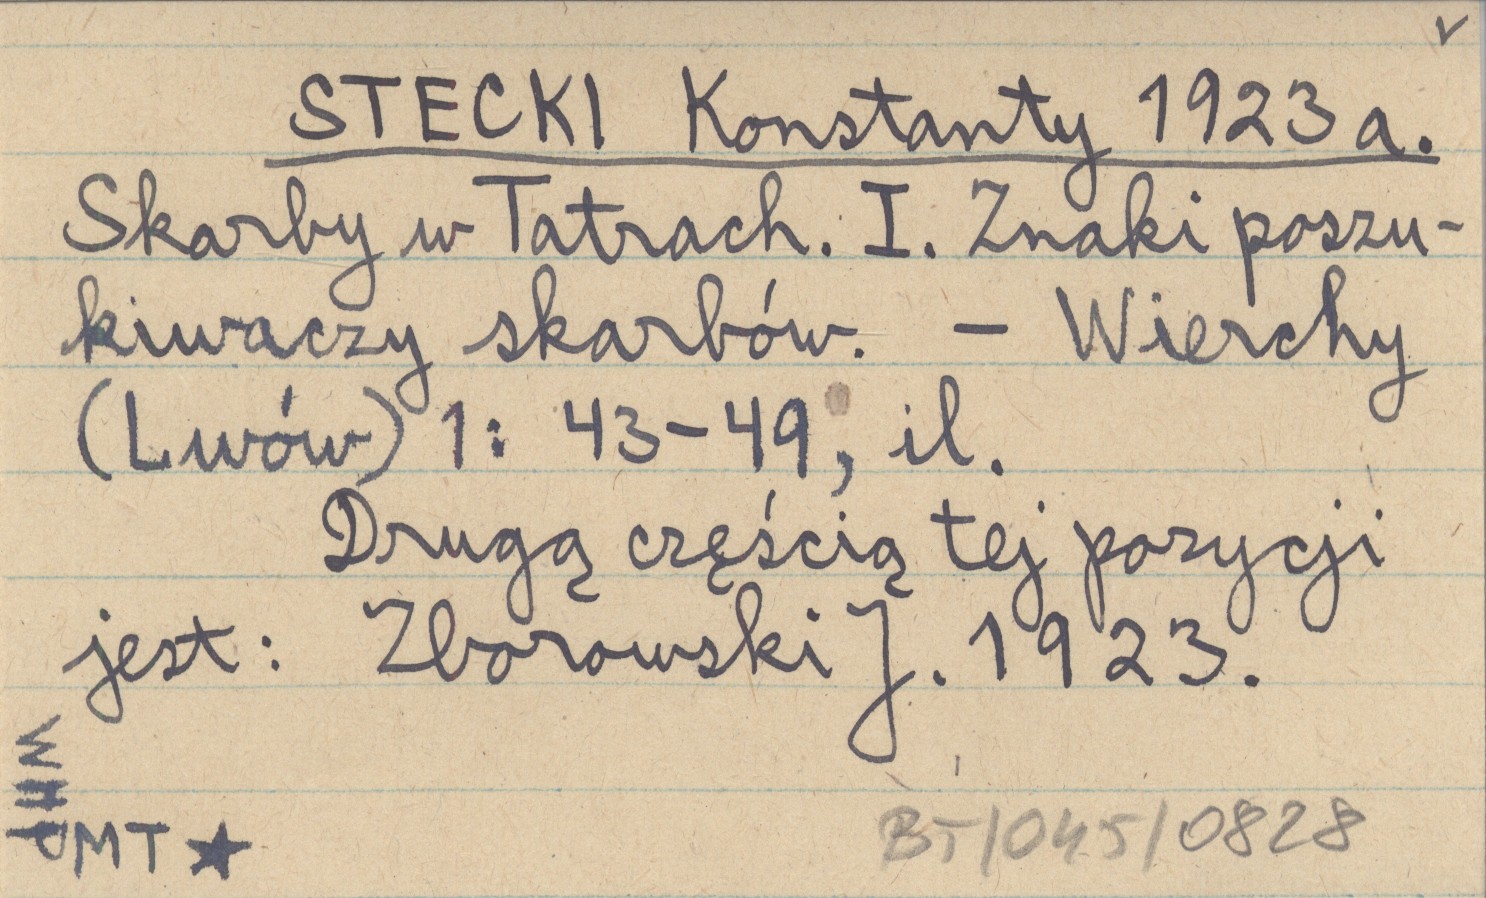 STECKI Konstanty 1923 a.
Skarby w Tatrach. I. Znaki poszu-
kiwaczy skarbów. – Wierchy
(Lwów) 1: 43–49, il.
Drugą częścią tej pozycji
jest: Zborowski J. 1923.
MT ★
BT/045/0828